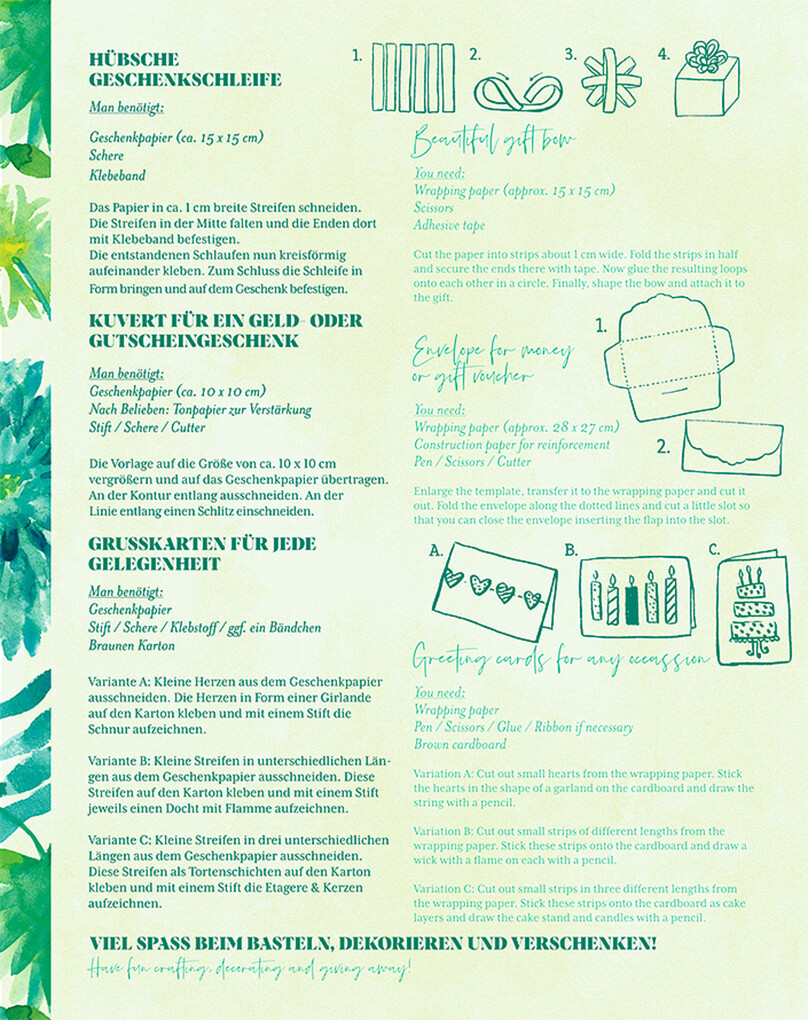 HÜBSCHE
GESCHENKSCHLEIFE
Man benötigt:
Geschenkpapier (ca. 15 x 15 cm)
Schere
Klebeband
Das Papier in ca. 1 cm breite Streifen schneiden.
Die Streifen in der Mitte falten und die Enden dort
mit Klebeband befestigen.
Die entstandenen Schlaufen nun kreisförmig
aufeinander kleben. Zum Schluss die Schleife in
Form bringen und auf dem Geschenk befestigen.
1.
2.
3.
4.
Beautiful gift bow
You need:
Wrapping paper (approx. 15 x 15 cm)
Scissors
Adhesive tape
Cut the paper into strips about 1 cm wide. Fold the strips in half
and secure the ends there with tape. Now glue the resulting loops
onto each other in a circle. Finally, shape the bow and attach it to
the gift.
KUVERT FÜR EIN GELD- ODER
GUTSCHEINGESCHENK
Man benötigt:
Geschenkpapier (ca. 10 x 10 cm)
Nach Belieben: Tonpapier zur Verstärkung
Stift / Schere / Cutter
Die Vorlage auf die Größe von ca. 10 x 10 cm
vergrößern und auf das Geschenkpapier übertragen.
An der Kontur entlang ausschneiden. An der
Linie entlang einen Schlitz einschneiden.
1.
Envelope for money
or gift voucher
You need:
Wrapping paper (approx. 28 x 27 cm)
Construction paper for reinforcement
Pen / Scissors / Cutter
2.
Enlarge the template, transfer it to the wrapping paper and cut it
out. Fold the envelope along the dotted lines and cut a little slot so
that you can close the envelope inserting the flap into the slot.
GRUSSKARTEN FÜR JEDE
GELEGENHEIT
Man benötigt:
Geschenkpapier
Stift / Schere / Klebstoff / ggf. ein Bändchen
Braunen Karton
Variante A: Kleine Herzen aus dem Geschenkpapier
ausschneiden. Die Herzen in Form einer Girlande
auf den Karton kleben und mit einem Stift die
Schnur aufzeichnen.
Variante B: Kleine Streifen in unterschiedlichen Län-
gen aus dem Geschenkpapier ausschneiden. Diese
Streifen auf den Karton kleben und mit einem Stift
jeweils einen Docht mit Flamme aufzeichnen.
Variante C: Kleine Streifen in drei unterschiedlichen
Längen aus dem Geschenkpapier ausschneiden.
Diese Streifen als Tortenschichten auf den Karton
kleben und mit einem Stift die Etagere & Kerzen
aufzeichnen.
A.
B.
C.
Greeting cards for any occassion
You need:
Wrapping paper
Pen / Scissors / Glue / Ribbon if necessary
Brown cardboard
Variation A: Cut out small hearts from the wrapping paper. Stick
the hearts in the shape of a garland on the cardboard and draw the
string with a pencil.
Variation B: Cut out small strips of different lengths from the
wrapping paper. Stick these strips onto the cardboard and draw a
wick with a flame on each with a pencil.
Variation C: Cut out small strips in three different lengths from
the wrapping paper. Stick these strips onto the cardboard as cake
layers and draw the cake stand and candles with a pencil.
VIEL SPASS BEIM BASTELN, DEKORIEREN UND VERSCHENKEN!
Have fun crafting, decorating and giving away!